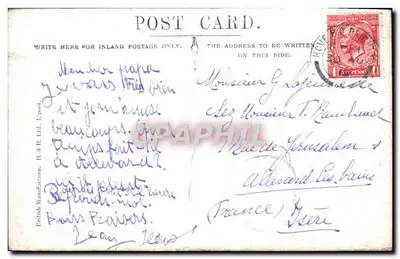 POST CARD
WRITE HERE FOR INLAND POSTAGE ONLY.
THE ADDRESS TO BE WRITTEN
ON THIS SIDE.
British Manufacture. B. & R. Ltd.
Mon cher papa
Je vais très bien
et je m'amuse
beaucoup.
temps fait-il
à Allevard?
Réponds-moi.
Bons Baisers.
Jean
Monsieur G. Lajeunesse
chez Monsieur T. Rambaud
1 Rue de Jérusalem
Allevard-les-bains
(France) Isère